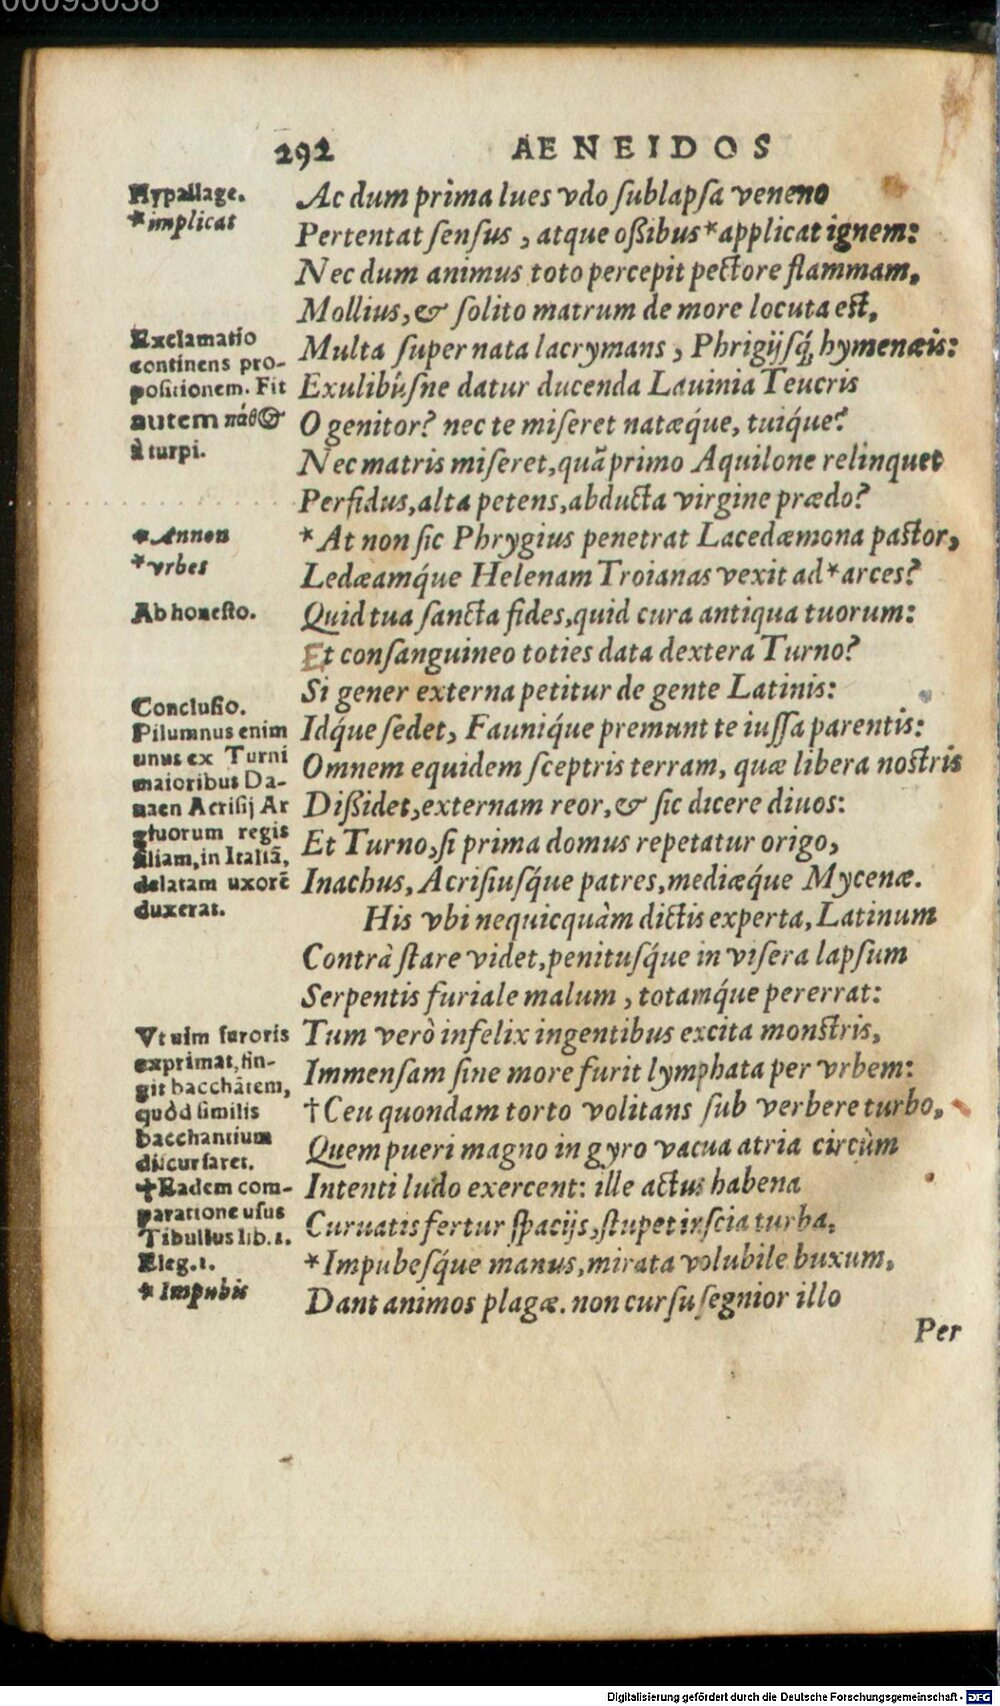 00093038
292 AENEIDOS
Hypallage.
*implicat
Exclamatio
continens pro-
positionem. Fit
autem πάθος
à turpi.
*Annon
*vrbes
Ab honesto.
Conclusio.
Pilumnus enim
unus ex Turni
maioribus Da-
naen Acrisij Ar
giuorum regis
filiam, in Italiã,
delatam uxorẽ
duxerat.
Vt uim furoris
exprimat, fin-
git bacchãtem,
quòd similis
bacchantium
discursaret.
†Eadem com-
paratione usus
Tibullus lib.1.
Eleg.1.
*Impubis
Ac dum prima lues vdo ſublapſa veneno
Pertentat ſenſus, atque oßibus *applicat ignem:
Nec dum animus toto percepit pectore flammam,
Mollius, & ſolito matrum de more locuta eſt,
Multa ſuper nata lacrymans, Phrigijſq́; hymenæis:
Exulibúſne datur ducenda Lauinia Teucris
O genitor? nec te miſeret natæq́ue, tuiq́ue?
Nec matris miſeret, quã primo Aquilone relinquet
Perfidus, alta petens, abducta virgine prædo?
*At non ſic Phrygius penetrat Lacedæmona paſtor,
Ledæamq́ue Helenam Troianas vexit ad *arces?
Quid tua ſancta fides, quid cura antiqua tuorum:
Et conſanguineo toties data dextera Turno?
Si gener externa petitur de gente Latinis:
Idq́ue ſedet, Fauniq́ue premunt te iuſſa parentis:
Omnem equidem ſceptris terram, quæ libera noſtris
Dißidet, externam reor, & ſic dicere diuos:
Et Turno, ſi prima domus repetatur origo,
Inachus, Acriſiuſq́ue patres, mediæq́ue Mycenæ.
His vbi nequicquàm dictis experta, Latinum
Contrà ſtare videt, penituſq́ue in viſera lapſum
Serpentis furiale malum, totamq́ue pererrat:
Tum verò infelix ingentibus excita monſtris,
Immenſam ſine more furit lymphata per vrbem:
†Ceu quondam torto volitans ſub verbere turbo,
Quem pueri magno in gyro vacua atria circùm
Intenti ludo exercent: ille actus habena
Curuatis fertur ſpacijs, ſtupet inſcia turba,
*Impubeſq́ue manus, mirata volubile buxum,
Dant animos plagæ. non curſu ſegnior illo
Per
Digitalisierung gefördert durch die Deutsche Forschungsgemeinschaft - DFG